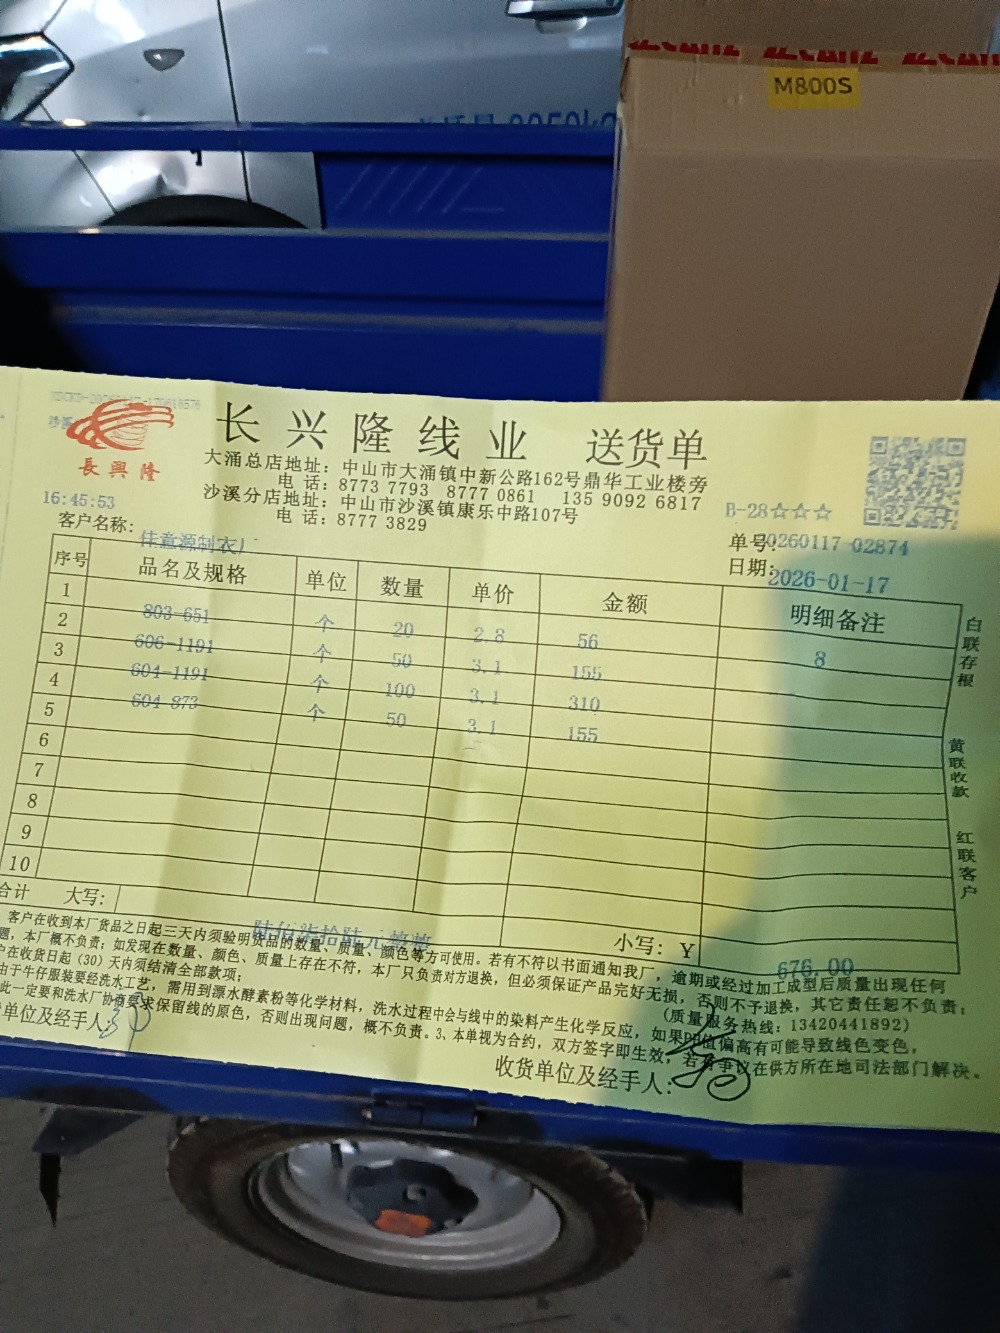 M800S
长兴隆线业 送货单
長興隆
大涌总店地址：中山市大涌镇中新公路162号鼎华工业楼旁
电话：8773 7793 8777 0861 135 9092 6817
沙溪分店地址：中山市沙溪镇康乐中路107号
电话：8777 3829
16:45:53
B-28☆☆☆
客户名称：佳意源制衣厂
单号：20260117-02874
日期：2026-01-17
序号 品名及规格 单位 数量 单价 金额 明细备注
1 803-651 个 20 2.8 56 8
2 606-1191 个 50 3.1 155
3 604-1191 个 100 3.1 310
4 604-873 个 50 3.1 155
5
6
7
8
9
10
合计 大写：陆佰柒拾陆元整 小写：Y 676.00
白联存根
黄联收款
红联客户
客户在收到本厂货品之日起三天内须验明货品的数量、质量、颜色等方可使用。若有不符以书面通知我厂，逾期或经过加工成型后质量出现任何
题，本厂概不负责；如发现在数量、颜色、质量上存在不符，本厂只负责对方退换，但必须保证产品完好无损，否则不予退换，其它责任恕不负责；
户在收货日起（30）天内须结清全部款项；
(质量服务热线：13420441892)
由于牛仔服装要经洗水工艺，需用到漂水酵素粉等化学材料，洗水过程中会与线中的染料产生化学反应，如果PH值偏高有可能导致线色变色，
此一定要和洗水厂协商要求保留线的原色，否则出现问题，概不负责。3、本单视为合约，双方签字即生效，若有争议在供方所在地司法部门解决。
单位及经手人：
收货单位及经手人：